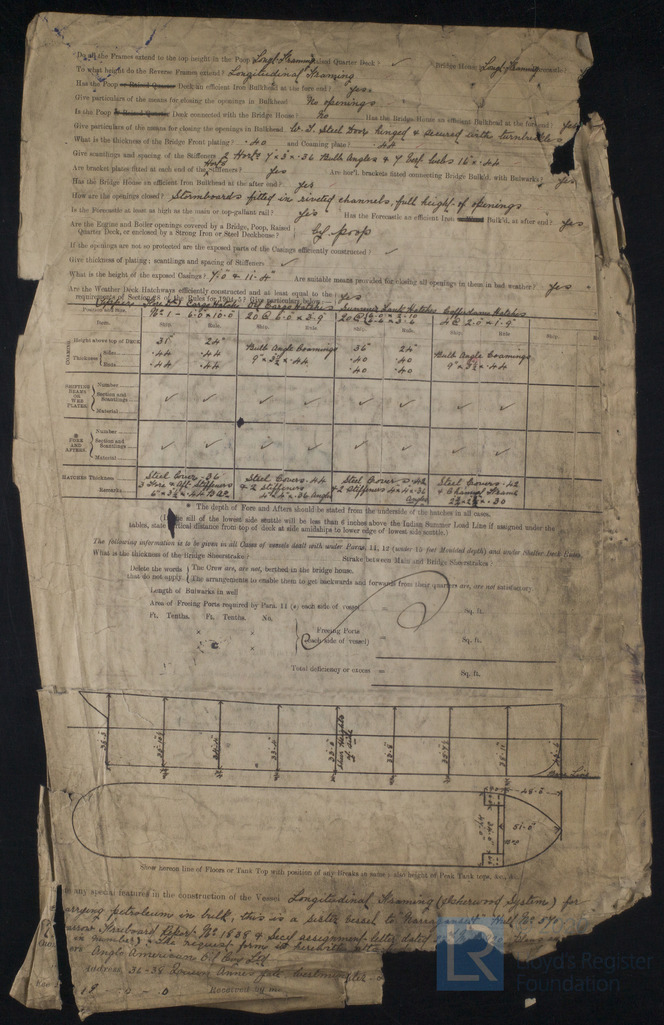 Do all the Frames extend to the top height in the Poop Longl Framing Raised Quarter Deck? ✓ Bridge House Longl Framing Forecastle?
To what height do the Reverse Frames extend? Longitudinal Framing
Has the Poop or Raised Quarter Deck an efficient Iron Bulkhead at the fore end? Yes
Give particulars of the means for closing the openings in Bulkhead No openings
Is the Poop or Raised Quarter Deck connected with the Bridge House? No Has the Bridge House an efficient Bulkhead at the fore end? Yes
Give particulars of the means for closing the openings in Bulkhead W.T. Steel Door hinged & secured with turnbuckles
What is the thickness of the Bridge Front plating? .40 and Coaming plate? .44
Give scantlings and spacing of the Stiffeners
Are bracket plates fitted at each end of the Stiffeners? Yes Are hor'l. brackets fitted connecting Bridge Bulk'd. with Bulwarks? Yes
Has the Bridge House an efficient Iron Bulkhead at the after end? Yes
How are the openings closed? Stormboards fitted in riveted channels, full height of openings
Is the Forecastle at least as high as the main or top-gallant rail? Yes Has the Forecastle an efficient Iron Bulk'd, at after end? Yes
Are the Engine and Boiler openings covered by a Bridge, Poop, Raised
Quarter Deck, or enclosed by a Strong Iron or Steel Deckhouse? By Poop
If the openings are not so protected are the exposed parts of the Casings efficiently constructed? ✓
Give thickness of plating; scantlings and spacing of Stiffeners ✓
What is the height of the exposed Casings? 7.0 & 11.4" Are suitable means provided for closing all openings in them in bad weather? Yes
Are the Weather Deck Hatchways efficiently constructed and at least equal to the
requirements of Section 28 of the Rules for 1904-5? Give particulars below Yes
Position and Size No 1 - 6.0 x 10.0 20 @ 6.0 x 3.9 4 @ 2.0 x 1.9
Item. Ship. Rule. Ship. Rule. Ship. Rule. Ship. Rule. Ship. Rule.
COAMING Height above top of Deck 35" 24" Bulb Angle Coamings 36" 24" Bulb Angle Coamings
Thickness Sides .44 .44 9" x 3½ x .44 .40 .40 9" x 3½ x .44
Ends .44 .44 .40 .40
SHIFTING BEAMS OR WEB PLATES Number
Section and Scantlings ✓ ✓ ✓ ✓ ✓ ✓ ✓ ✓
Material
FORE AND AFTERS. Number
Section and Scantlings ✓ ✓ ✓ ✓ ✓ ✓ ✓ ✓
Material
HATCHES Thickness Steel Cover .36 Steel Covers .44 Steel Covers .42 Steel Covers .42
Remarks 3 Fore & Aft Stiffeners & 2 stiffeners & 2 Stiffeners 4 x 4 x .36 & Channel Frame
4 x 4 x .36 Angle Angle
* The depth of Fore and Afters should be stated from the underside of the hatches in all cases.
(If the sill of the lowest side scuttle will be less than 6 inches above the Indian Summer Load Line if assigned under the
tables, state distance from top of deck at side amidships to lower edge of lowest side scuttle.)
The following information is to be given in all Cases of vessels dealt with under Paras. 11, 12 (under 15 feet Moulded depth) and under Shelter Deck Rules.
What is the thickness of the Bridge Sheerstrake? Strake between Main and Bridge Sheerstrakes
Delete the words that do not apply. The Crew are, are not, berthed in the bridge house.
The arrangements to enable them to get backwards and forwards from their quarters are, are not satisfactory
Length of Bulwarks in well
Area of Freeing Ports required by Para. 11 (e) each side of vessel Sq. ft.
Ft. Tenths. Ft. Tenths. No.
x x Freeing Ports
(each side of vessel) = Sq. ft.
Total deficiency or excess = Sq. ft.
Base Line
48.6
51.0
Show hereon line of Floors or Tank Top with position of any Breaks in same; also height of Peak Tank tops, &c., &c.
any special features in the construction of the Vessel Longitudinal Framing (Isherwood System) for
carrying petroleum in bulk, this is a sister vessel to Narragansett Hull No 570
Freeboard Report No 1839 & Secs assignment letter dated
in number) The request form is herewith
Anglo American Oil Coy Ltd
Address, 36-38 Queen Anne's Gate Westminster
18 - 0 - 0 Received by me,
LR Lloyd's Register
Foundation